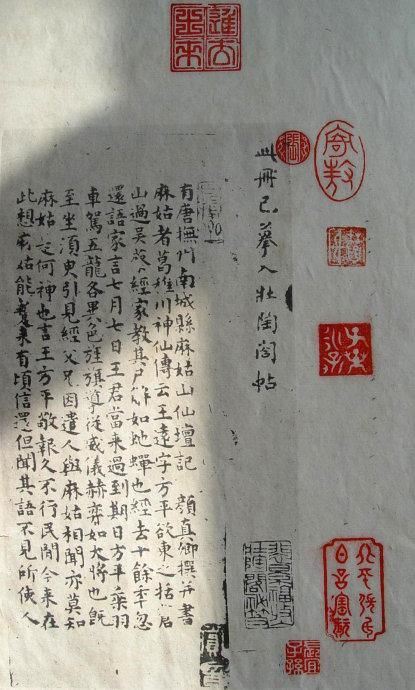 此冊已摹入壯陶閣帖
有唐撫州南城縣麻姑山仙壇記 顏真卿撰并書
麻姑者葛稚川神仙傳云王遠字方平欲東之括蒼
山過吳蔡經家教其尸解如蛇蟬也經去十餘年忽
還語家言七月七日王君當來過到期日方平乘羽
車駕五龍各異色旌旗導從威儀赫弈如大將也既
至坐須臾引見經父兄因遣人與麻姑相聞亦莫知
麻姑是何神也言王方平敬報久不行民間今來在
此想麻姑能蹔來有頃信還但聞其語不見所使人